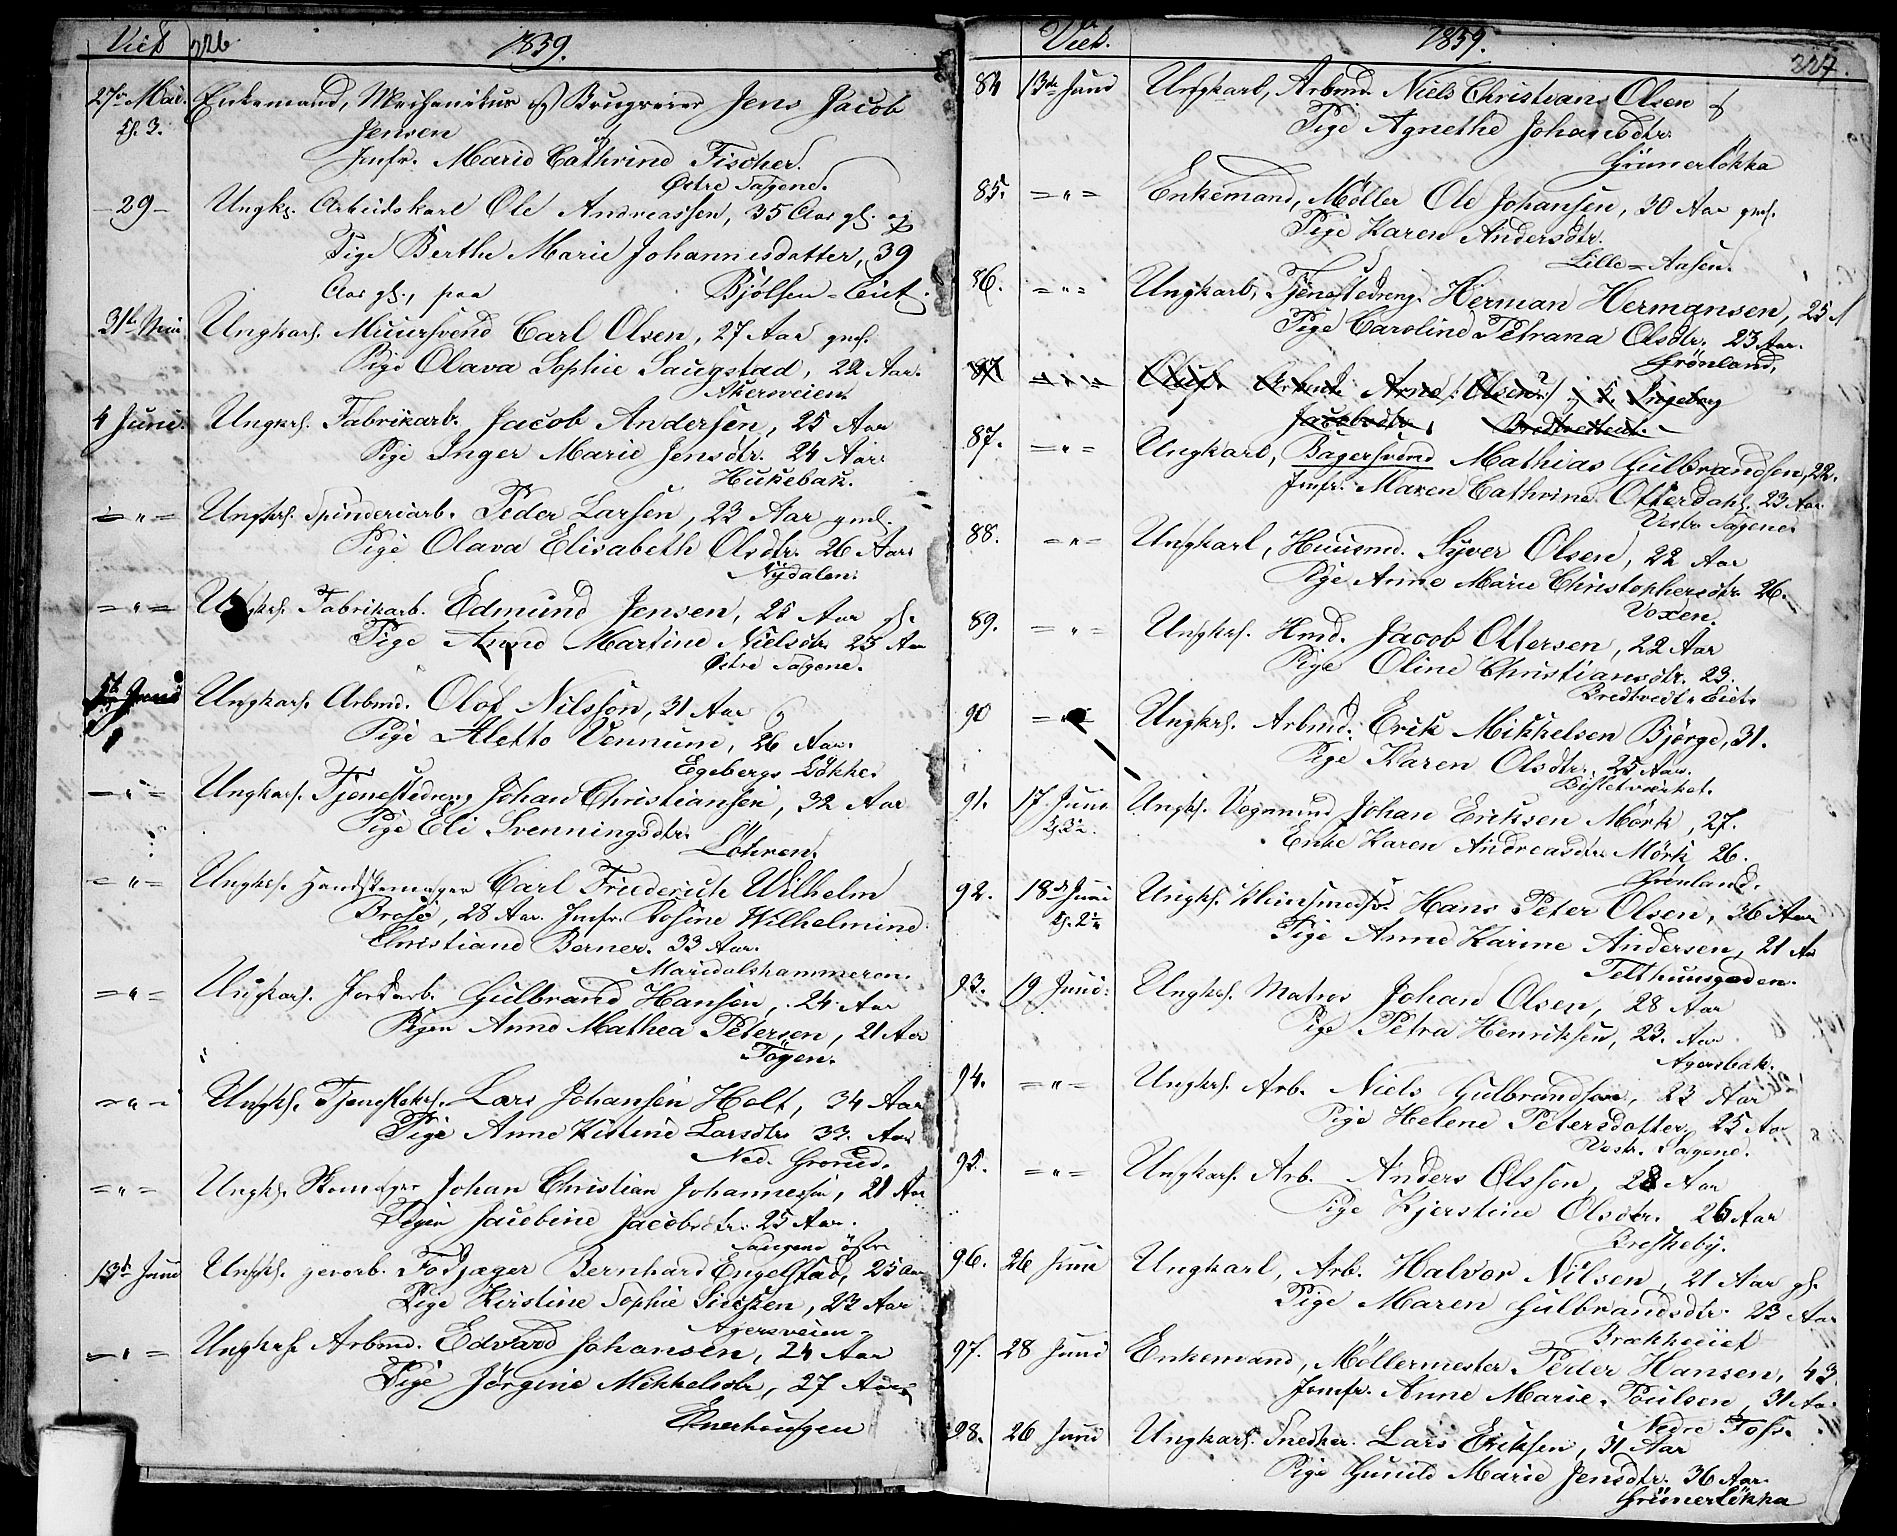 Viet 226 1859.
27de Mai. Enkemand, Mechanikus og Brugseier Jens Jacob
Kl. 3. Jensen
og
Jmfr. Marie Cathrine Fischer.
Østre Sagene.
29 Ungk. Arbeidskarl Ole Andreassen, 35 Aar gl. og
Pige Berthe Marie Johannesdatter, 39
Aar gl., paa Bjølsen-Eiet.
31te Mai Ungkarl. Muursvend Carl Olsen, 27 Aar gml.
Pige Olava Sophie Saugstad, 22 Aar.
Akersveien.
4 Juni. Ungkrl. Fabrikarb. Jacob Andersen, 25 Aar
Pige Inger Marie Jensdtr. 24 Aar.
Hukebak.
= " = Ungkrl. Spinderiarb. Peder Larsen, 23 Aar gml.
Pige Olava Elisabeth Olsdtr. 26 Aar.
Nydalen.
= " = Ungkrl. Fabrikarb. Edmund Jensen, 25 Aar gl.
Pige Anne Martine Nielsdtr. 25 Aar
Østre Sagene.
5te Juni Ungkarl. Arbmd. Olof Nilsson, 31 Aar
Pige Aletto Vennum, 26 Aar.
Egebergs Løkke.
= " = Ungkarl. Tjenestedreng Johan Christiansen, 32 Aar
Pige Eli Svenningsdtr.
Løhren.
= " = Ungkrl. Handskemager Carl Friederich Wilhelm
Brose, 28 Aar. Jmfr. Rosine Wilhelmine
Christiane Berner. 33 Aar.
Maridalshammeren.
= " = Ungkarl. Jordarb. Gulbrand Hansen, 24 Aar
Pigen Anne Mathea Petersen, 21 Aar
Töyen.
= " = Ungkl. Tjenestekrl. Lars Johansen Holt, 34 Aar
Pige Anne Kistine Larsdtr. 33. Aar
Ned. Grorud.
= " = Ungkl. Skomager Johan Christian Johannessen, 21 Aar
Pigen Jacobine Jacobsdtr. 25 Aar.
Saugene östr.
13de Juni Ungkrl. gevorb. Fodjæger Bernhard Engelstad, 25 Aar
Pige Kirstine Sophie Siversen, 23 Aar
Agersveien
= " = Ungkrl. Arbmd. Edvard Johansen, 24 Aar
Pige Jörgine Mikkelsdtr, 27 Aar.
Enerhougen
Viet. 1859. 227.
84 13de Juni Ungkarl, Arbmd. Niels Christian Olsen og
Pige Agnethe Johansdtr.
Grünerløkka
85. = " = Enkemand, Møller Ole Johansen, 30 Aar gml.
Pige Karen Andersdtr.
Lille-Aasen.
86. = " = Ungkarl, Tjenestedreng. Herman Hermansen, 25 A
Pige Caroline Petrana Olsdtr. 23 Aar.
Grönland.
87 = " = Ungk. Arbmd. Arne Olsen og P. Ingeborg
Jacobsdtr, Bredtvedteiet.
87. = " = Ungkarl, Bagersvend Mathias Gulbrandsen, 22.
Jmfr. Maren Cathrine Otterdahl. 23 Aar
Vestr. Sagene.
88. = " = Ungkarl, Huusmd. Syver Olsen, 22 Aar
Pige Anne Marie Christophersdtr. 26.
Voxen.
89. = " = Ungkrl. Hmd. Jacob Ottersen, 22 Aar
Pige Oline Christiansdtr. 23.
Bredtvedt Eiet.
90 = " = Ungkrl. Arbmd. Erik Mikkelsen Bjørge, 31.
Pige Karen Olsdtr, 25 Aar.
Bisletværket.
91. 17. Juni Ungkl. Vognmand Johan Eriksen Mörk, 27.
Enke Karen Andreasdtr. Mörk, 26.
Grønland.
92. 18de Juni Ungkl. Klinsmedsv. Hans Peter Olsen, 36 Aar
Pige Anne Karine Andersen, 21 Aar
Telthuusgaden.
93. 19 Juni. Ungkrl. Matros Johan Olsen, 28 Aar
Pige Petra Henriksen, 23. Aar
Agersbak.
94. = " = Ungkrl. Arb. Niels Gulbrandsen, 23 Aar
Pige Helene Petersdatter, 25 Aar
Vestr. Sagene.
95. = " = Ungkarl. Arb. Anders Olssen, 28 Aar
Pige Kjerstine Olsdtr. 26 Aar
Briskeby.
96. 26 Juni Ungkarl, Arb. Halvor Nilsen, 21 Aar gl.
Pige Maren Gulbrandsdtr. 23 Aar
Brækkeeiet
97. 28 Juni Enkemand, Møllermester Peder Hansen, 43
Jomfr. Anne Marie Poulsen, 31 Aar
Nedre Foss.
98. 26 Juni Ungkarl. Snedker. Lars Eriksen, 31 Aar
Pige Gunild Marie Jensdtr. 36 Aar.
Grünerløkka